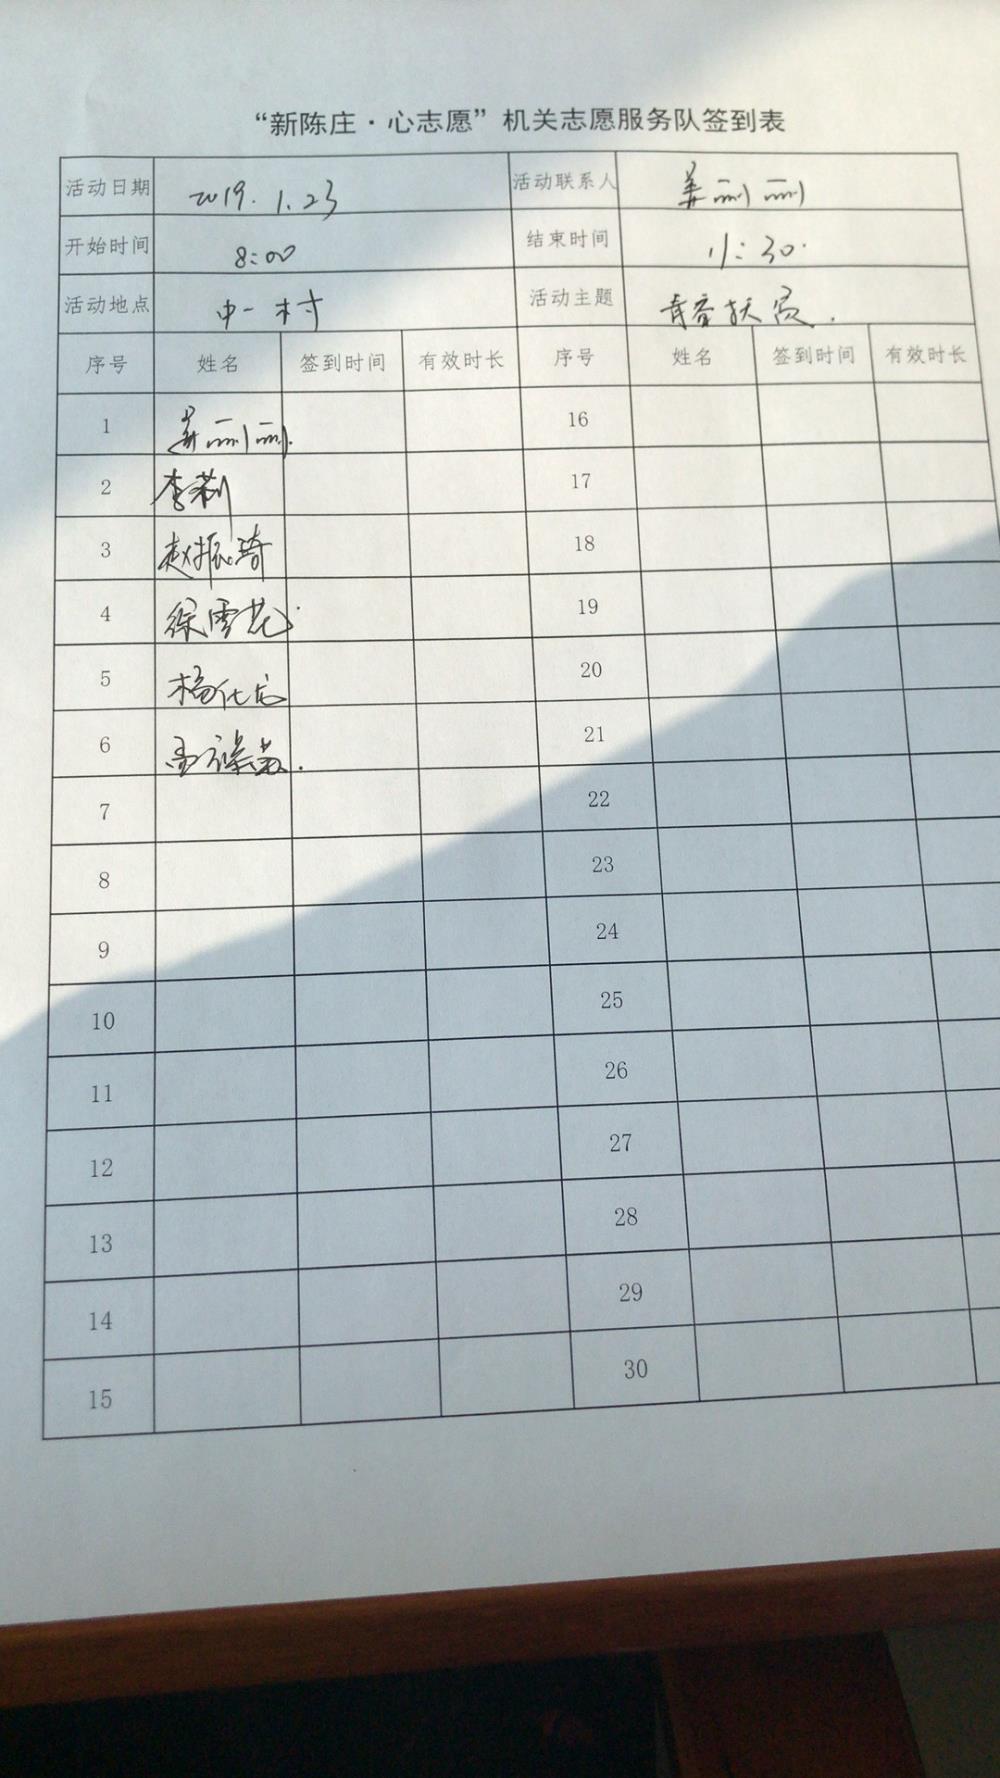 “新陈庄·心志愿”机关志愿服务队签到表
活动日期 2019.1.23 活动联系人 姜丽丽
开始时间 8:00 结束时间 11:30.
活动地点 中一村 活动主题
序号 姓名 签到时间 有效时长 序号 姓名 签到时间 有效时长
1 姜丽丽. 16
2 李莉 17
3 赵振琦 18
4 徐雪花 19
5 20
6 21
7 22
8 23
9 24
10 25
11 26
12 27
13 28
14 29
15 30